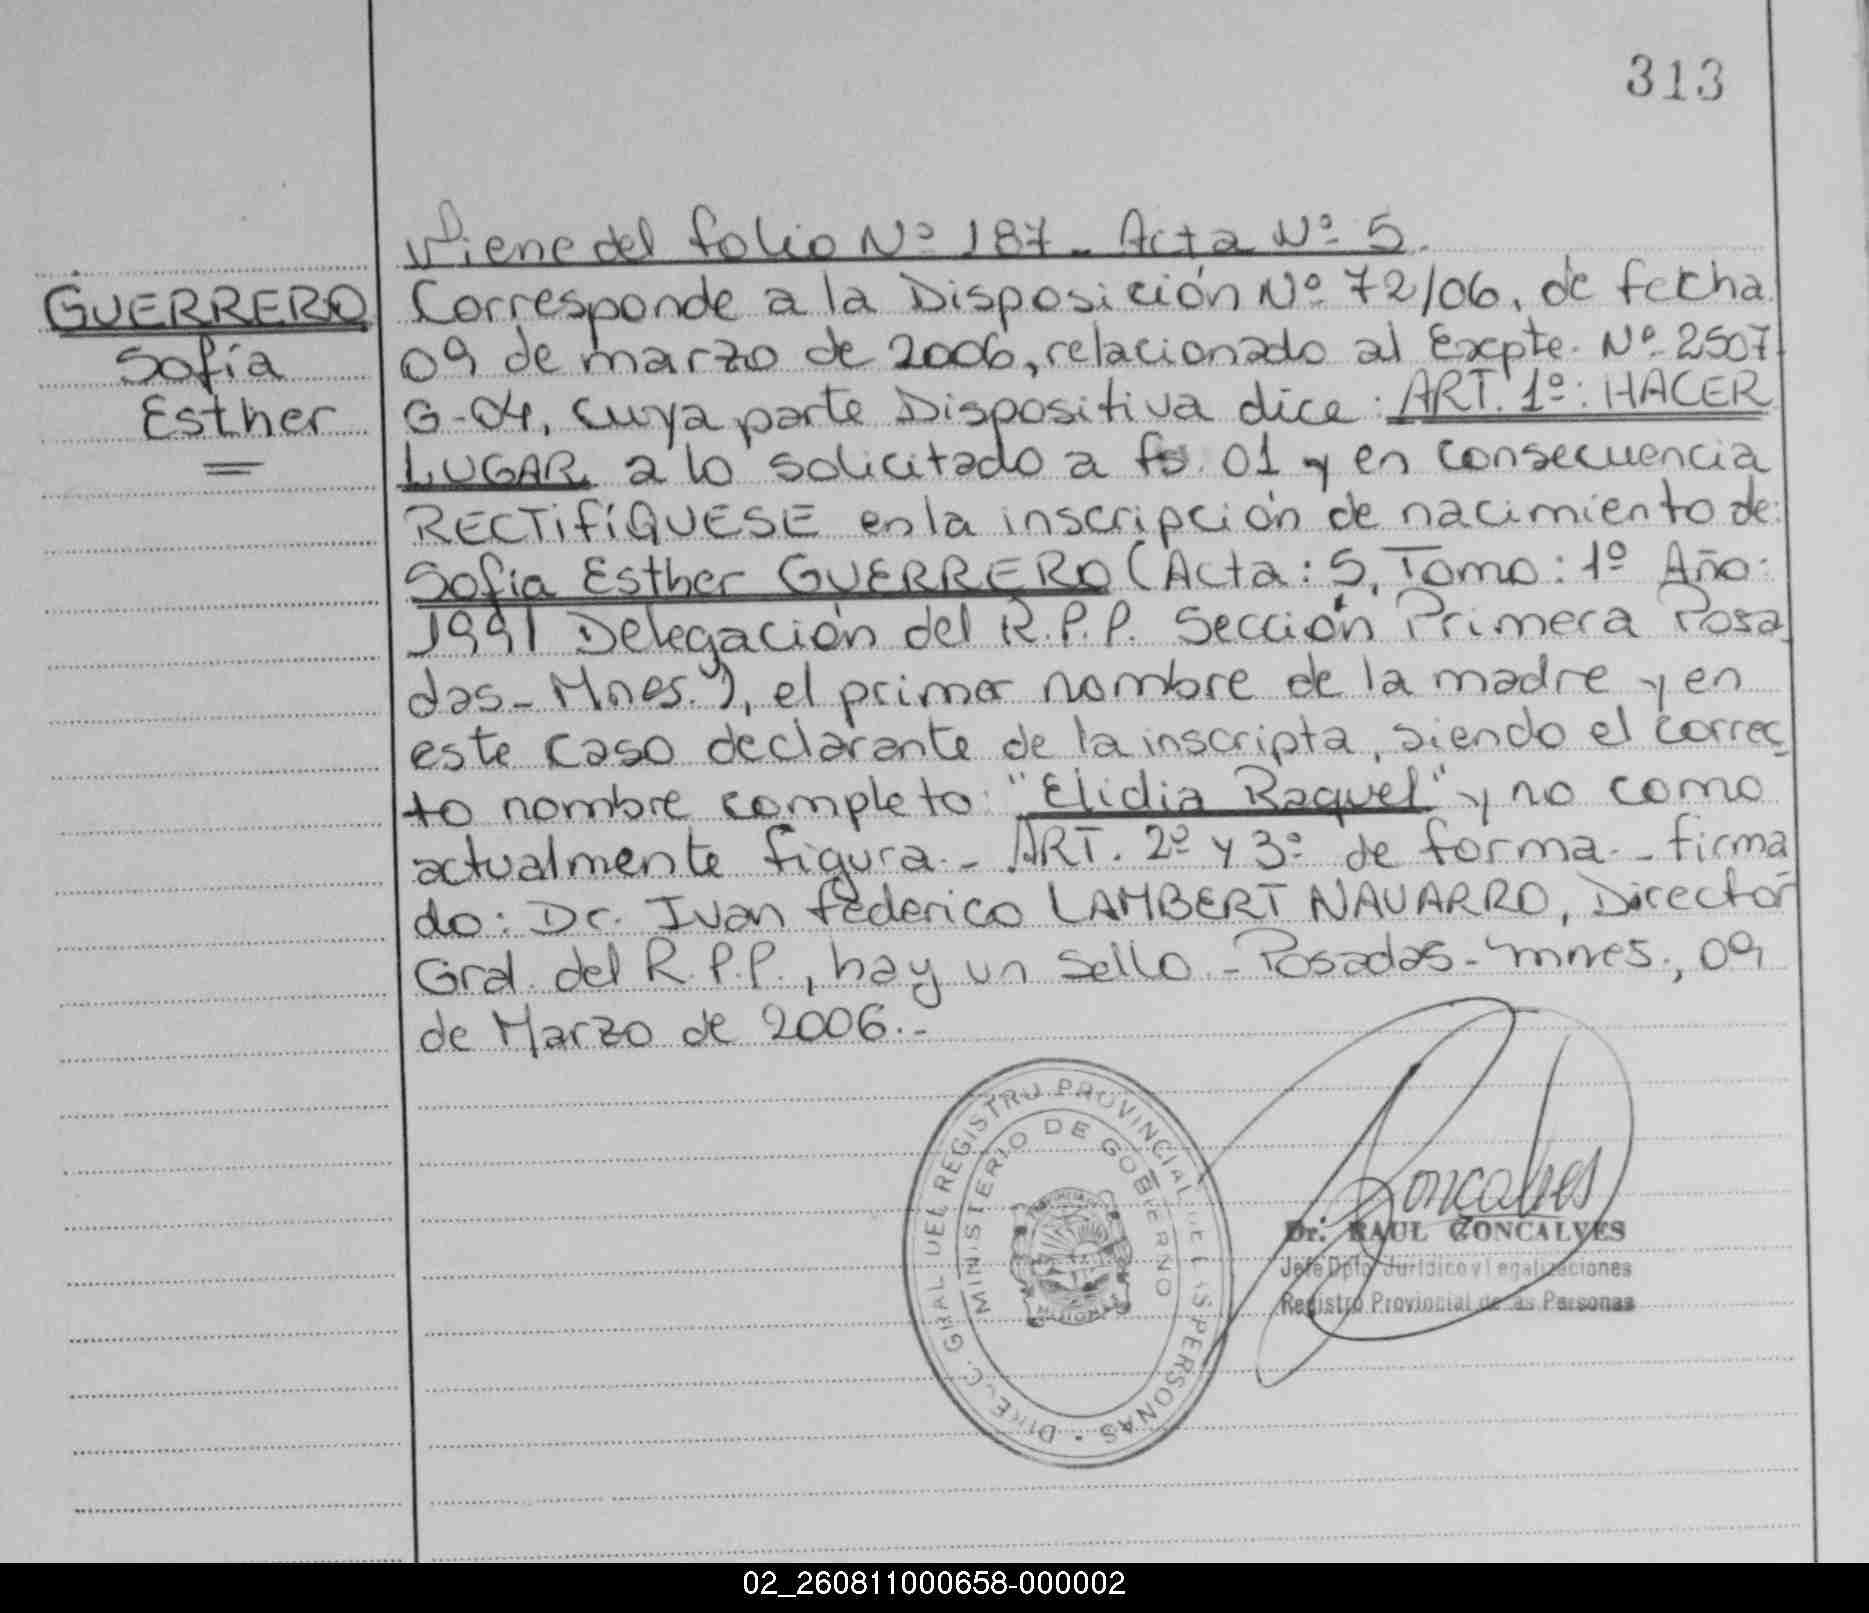 313
Viene del folio Nº 187 - Acta Nº 5.
GUERRERO
Sofía
Esther
Corresponde a la Disposición Nº 72/06, de fecha
09 de marzo de 2006, relacionado al Expte. Nº 2507
G-04, cuya parte Dispositiva dice: ART. 1º: HACER
LUGAR a lo solicitado a fs. 01 y en consecuencia
RECTIFÍQUESE en la inscripción de nacimiento de:
Sofía Esther GUERRERO (Acta: 5, Tomo: 1º Año:
1991 Delegación del R.P.P. Sección Primera Posa
das - Mnes.), el primer nombre de la madre y en
este caso declarante de la inscripta, siendo el correc
to nombre completo: "Elidia Raquel" y no como
actualmente figura.- ART. 2º y 3º de forma.- firma
do: Dr. Ivan Federico LAMBERT NAVARRO, Director
Gral. del R.P.P., hay un sello - Posadas - mnes., 09
de Marzo de 2006.-
DIREC. GRAL DEL REGISTRO PROVINCIAL DE LAS PERSONAS
MINISTERIO DE GOBIERNO
PROVINCIA
MISIONES
Goncalves
Dr. RAUL GONCALVES
Jefe Dpto. Jurídico y Legalizaciones
Registro Provincial de las Personas
02_260811000658-000002